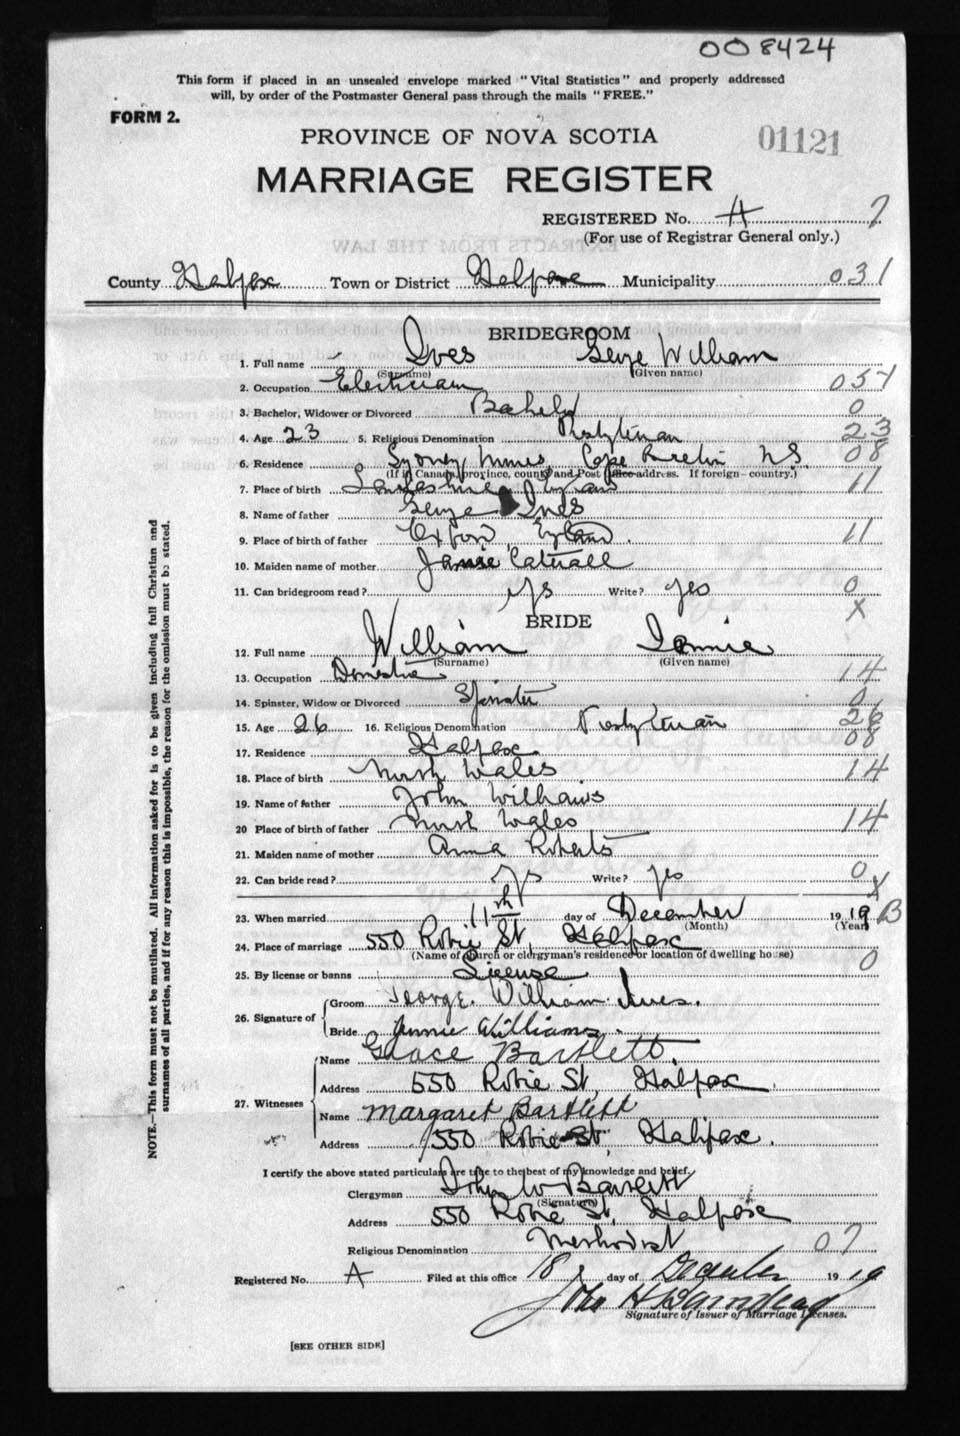 008424
This form if placed in an unsealed envelope marked "Vital Statistics" and properly addressed
will, by order of the Postmaster General pass through the mails "FREE."
FORM 2.
PROVINCE OF NOVA SCOTIA
01121
MARRIAGE REGISTER
REGISTERED No. A 7
(For use of Registrar General only.)
County Halifax Town or District Halifax Municipality 031
BRIDEGROOM
1. Full name Ives George William
(Surname) (Given name)
2. Occupation Electrician 054
3. Bachelor, Widower or Divorced Bachelor 0
4. Age 23 5. Religious Denomination Presbyterian 23
6. Residence Sydney Mines, Cape Breton N.S. 08
(If in Canada, province, county and Post Office address. If foreign—country.)
7. Place of birth England 11
8. Name of father George Ives
9. Place of birth of father Oxford, England. 11
10. Maiden name of mother Catterall
11. Can bridegroom read? yes Write? yes 0
X
BRIDE
12. Full name William Jennie
(Surname) (Given name)
13. Occupation Domestic 14
14. Spinster, Widow or Divorced Spinster 0
15. Age 26 16. Religious Denomination Presbyterian 26
17. Residence Halifax 08
18. Place of birth North Wales 14
19. Name of father John Williams
20 Place of birth of father North Wales 14
21. Maiden name of mother Anna Roberts
22. Can bride read? yes Write? yes 0
X
23. When married 11th day of December 19 19 B
(Month) (Year)
24. Place of marriage 550 Robie St, Halifax
(Name of church or clergyman's residence or location of dwelling house) 0
25. By license or banns License
26. Signature of Groom George William Ives.
Bride Jennie Williams.
27. Witnesses Name Grace Bartlett.
Address 550 Robie St, Halifax.
Name Margaret Bartlett
Address 550 Robie St, Halifax.
I certify the above stated particulars are true to the best of my knowledge and belief.
Clergyman John W Bartlett
(Signature)
Address 550 Robie St, Halifax
Religious Denomination Methodist 07
Registered No. A Filed at this office 18 day of December 19 19
John H
Signature of Issuer of Marriage Licenses.
[SEE OTHER SIDE]
NOTE.—This form must not be mutilated. All information asked for is to be given including full Christian and
surnames of all parties, and if for any reason this is impossible, the reason for the omission must be stated.